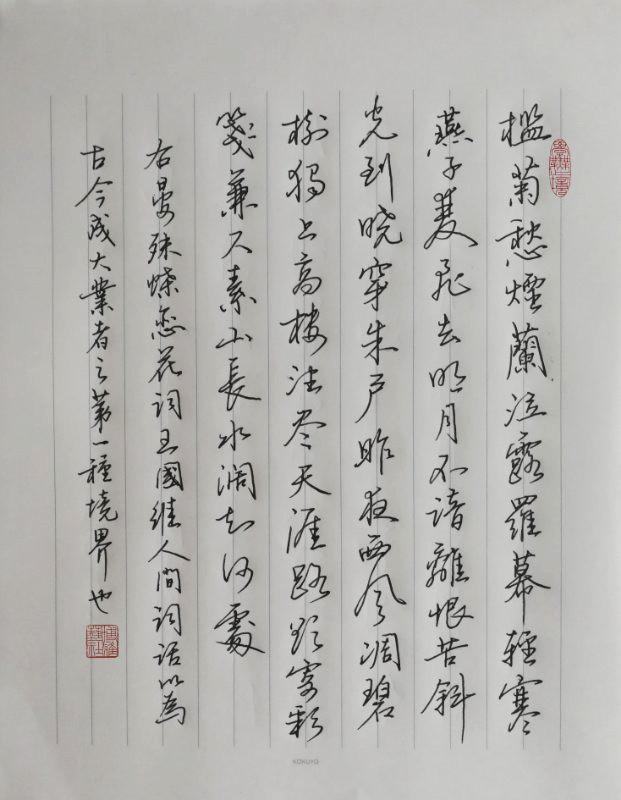 檻菊愁煙蘭泣露羅幕輕寒
燕子雙飛去明月不諳離恨苦斜
光到曉穿朱户昨夜西风凋碧
樹獨上高樓望尽天涯路欲寄彩
箋兼尺素山長水闊知何處
右晏殊蝶恋花詞王國維人間詞話以為
古今成大業者之第一種境界也
KOKUYO